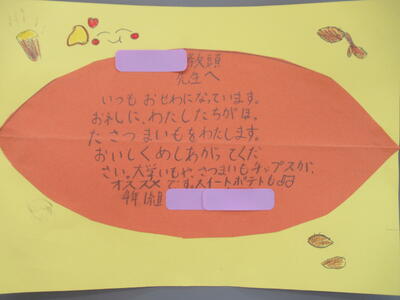 教頭
先生へ
いつもおせわになっています。
お礼に、わたしたちがほっ
たさつまいもをわたします。
おいしくめしあがってくだ
さい。大学いもや、さつまいもチップスが、
オススメです。スイートポテトも
4年1組